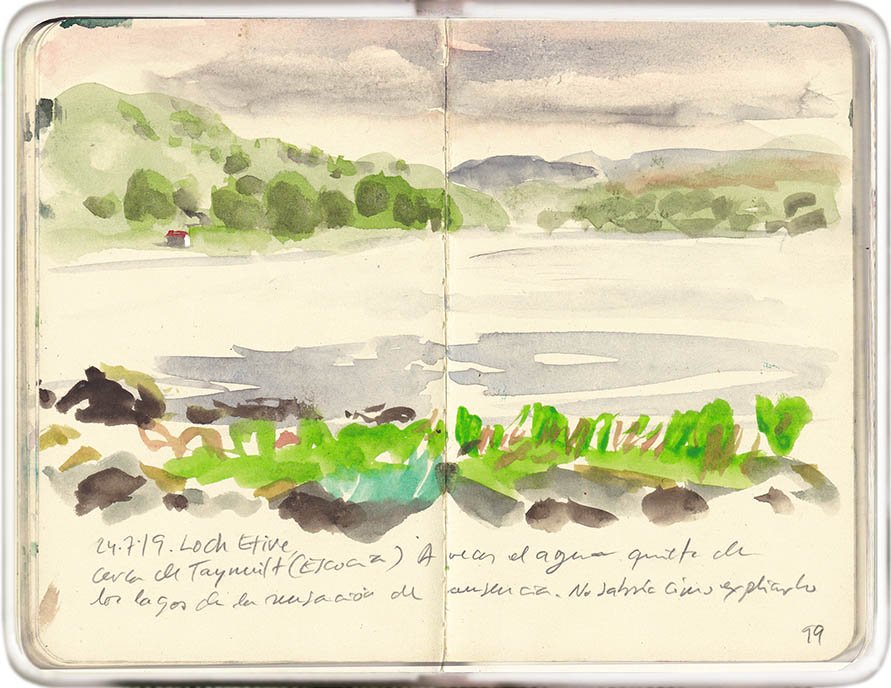 24.7.19. Loch Etive,
cerca de Taynuilt (Escocia) A veces el agua quieta de
los lagos da la sensación de ausencia. No sabría cómo explicarlo
99